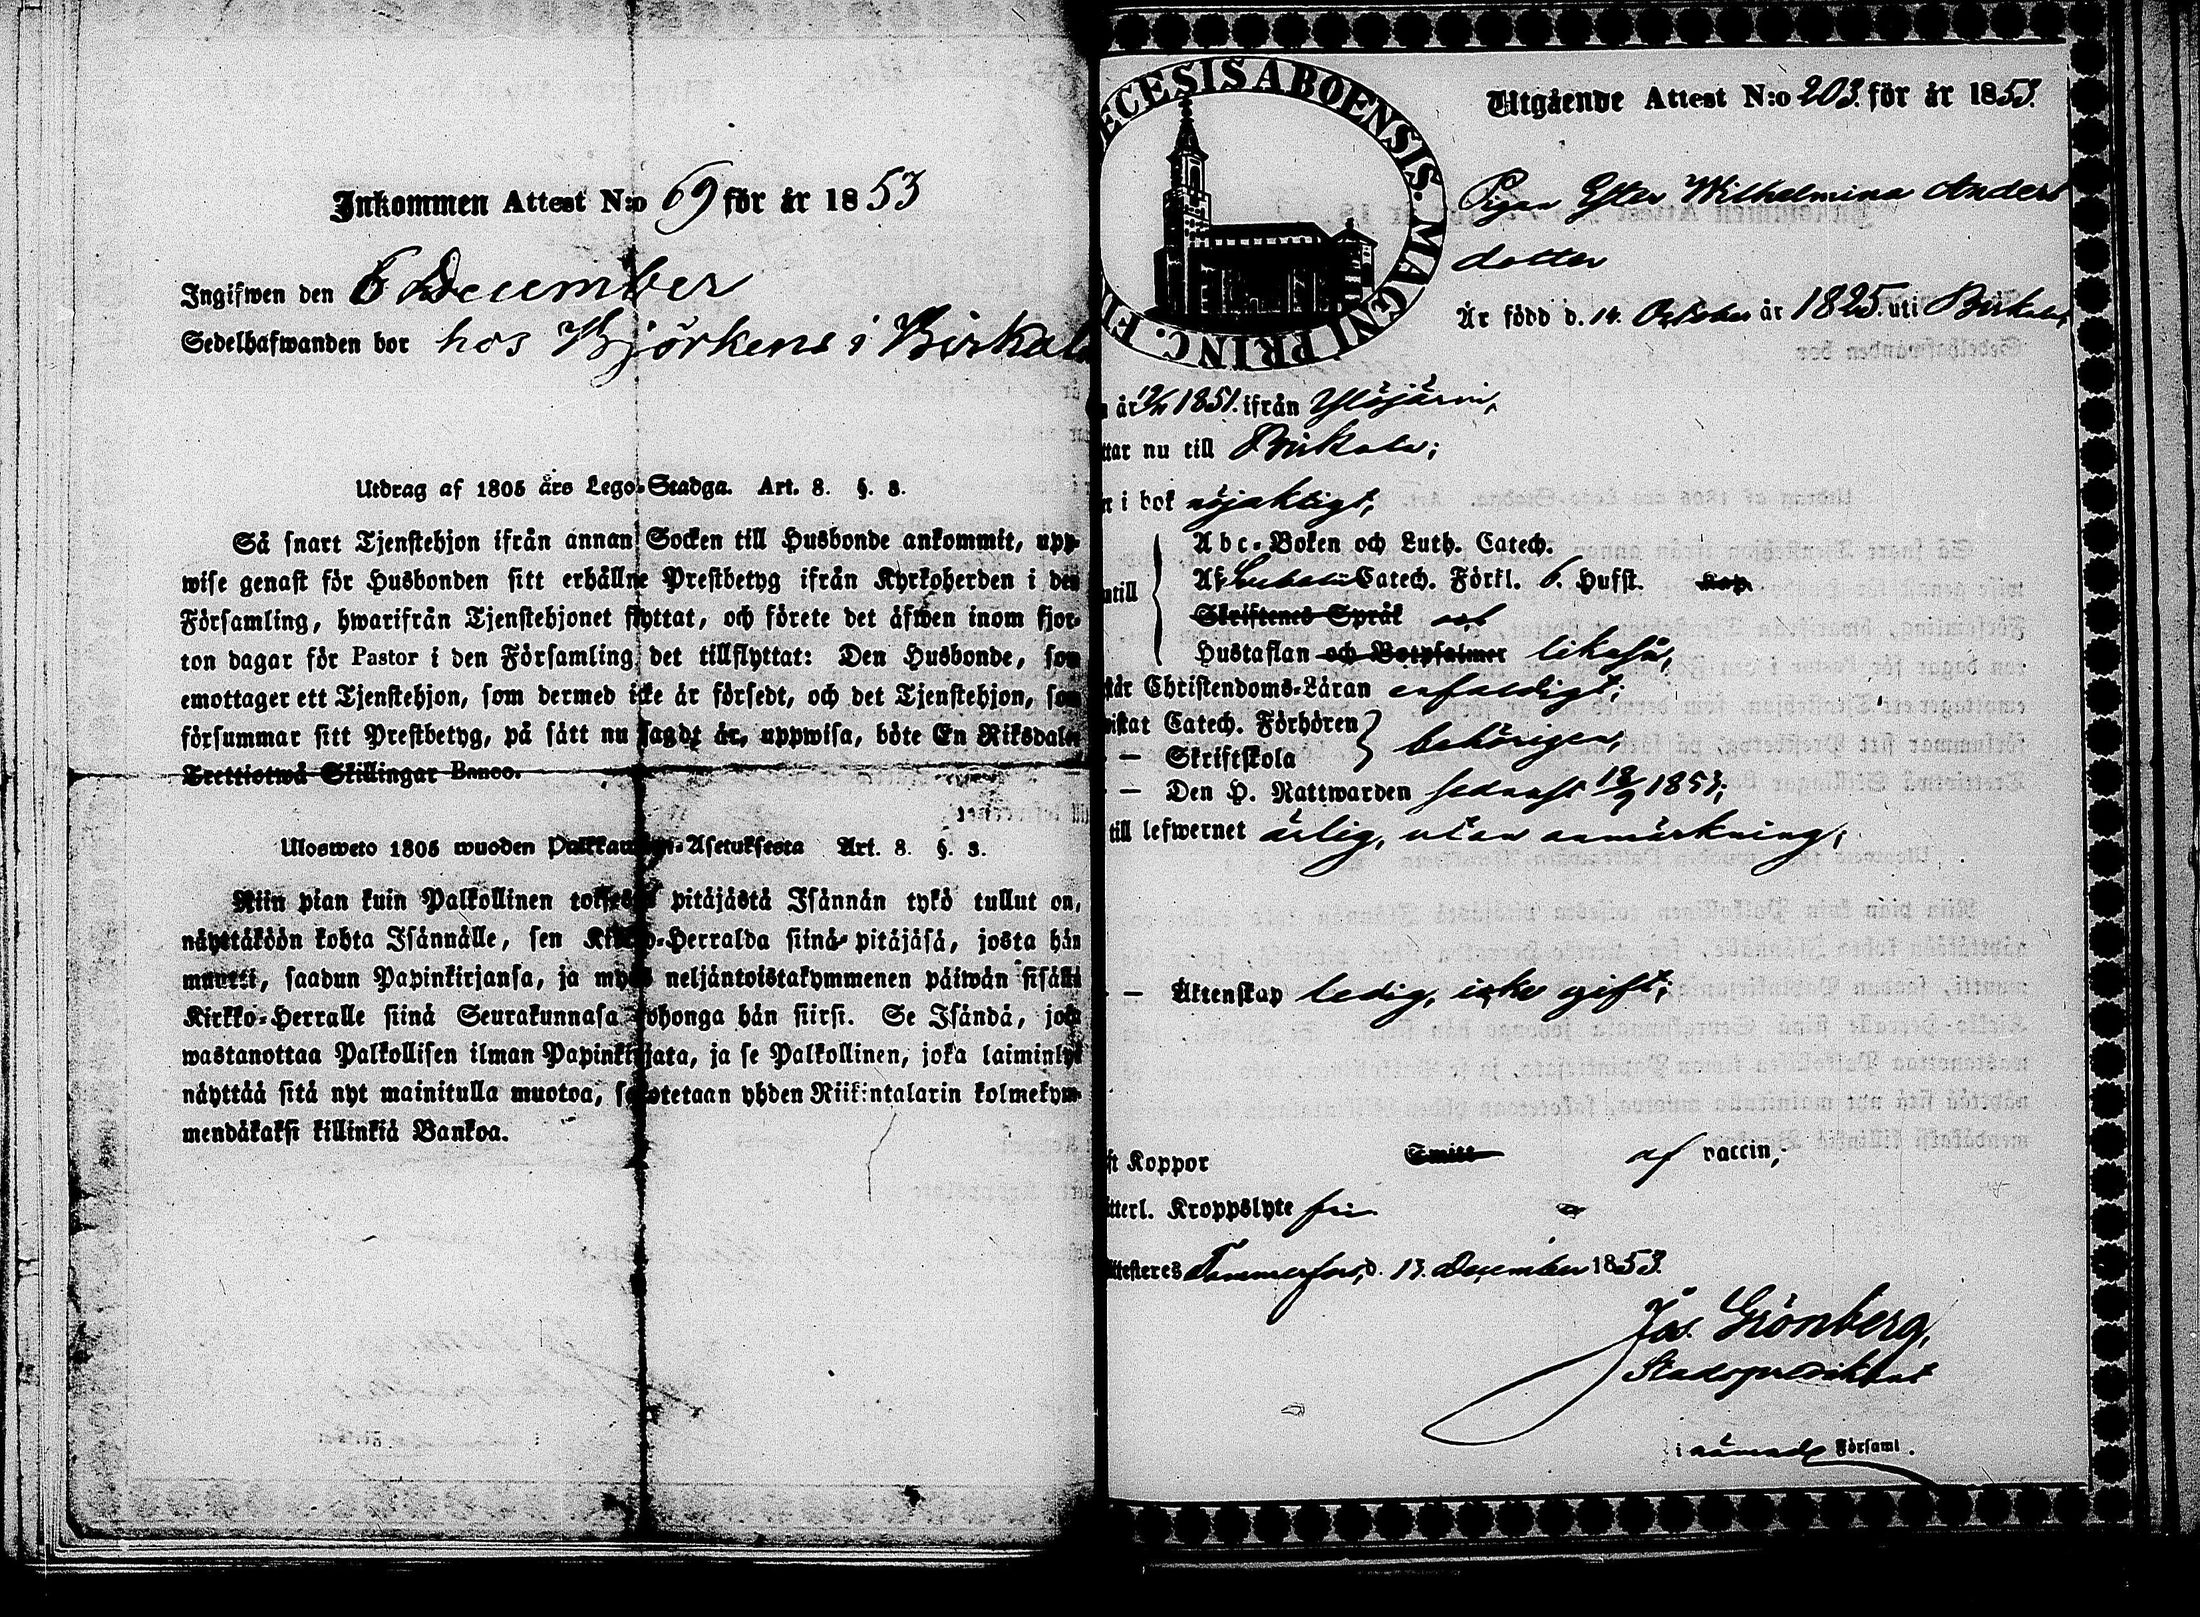 Inkommen Attest N:o 69 för år 1853
Ingifwen den 6 December
Sedelhafwanden bor hos Björkens i Birkala
Utdrag af 1805 års Lego-Stadga. Art. 8. §. 3.
Så snart Tjenstehjon ifrån annan Socken till Husbonde ankommit, upp-
wise genast för Husbonden sitt erhållne Prestbetyg ifrån Kyrkoherden i den
Församling, hwarifrån Tjenstehjonet flyttat, och förete det äfwen inom fjor-
ton dagar för Pastor i den Församling det tillflyttat: Den Husbonde, som
emottager ett Tjenstehjon, som dermed icke är försedt, och det Tjenstehjon, som
försummar sitt Prestbetyg, på sätt nu sagdt är, uppwisa, böte En Riksdaler
Trettiotwå Skillingar Banco.
Ulosweto 1805 wuoden Palkkawäen-Asetuksesta Art. 8. §. 3.
Niin pian kuin Palkollinen toisesta pitäjästä Isännän tykö tullut on,
näyttäköön kohta Isännälle, sen Kirkko-Herralda siinä pitäjäsä, josta hän
muutti, saadun Papinkirjansa, ja myös neljäntoistakymmenen päiwän sisällä
Kirkko-Herralle siinä Seurakunnasa johonga hän siirsi. Se Isändä, joka
wastanottaa Palkollisen ilman Papinkirjata, ja se Palkollinen, joka laiminlyö
näyttää sitä nyt mainitulla muotoa, sakotetaan yhden Riikintalarin kolmekym-
mendäkaksi killinkiä Bankoa.
ECESIS ABOENSIS. MAGNI PRINC. FI
Utgående Attest N:o 203. för år 1853.
Pigan Ester Wilhelmina Anders
dotter
Är född d. 14. October år 1825. uti Birkala,
år 1851. ifrån Ylöjärvi,
ttar nu till Birkala;
n i bok nöjaktigt;
Abc-Boken och Luth. Catech.
ntill Af Catech. Förkl. 6. Hufst. Kap.
Skriftenes Språk
Hustaflan och Botpsalmer likaså,
står Christendoms-Läran enfaldigt;
wistat Catech. Förhören
— Skriftskola behörigen,
— Den H. Nattwarden sednast 18/9 1853;
till lefwernet ärlig, utan anmärkning;
— Äktenskap ledig, icke gift;
ft Koppor Smitt af vaccin;
tterl. Kroppslyte fri
Attesteres Tammerfors, d. 13. December 1853.
Jos. Grönberg,
Stadspredikant
i nämnde Församl.